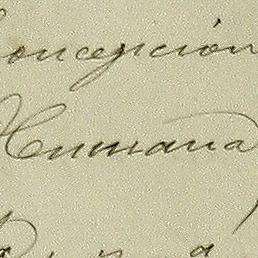 Concepción
Humana